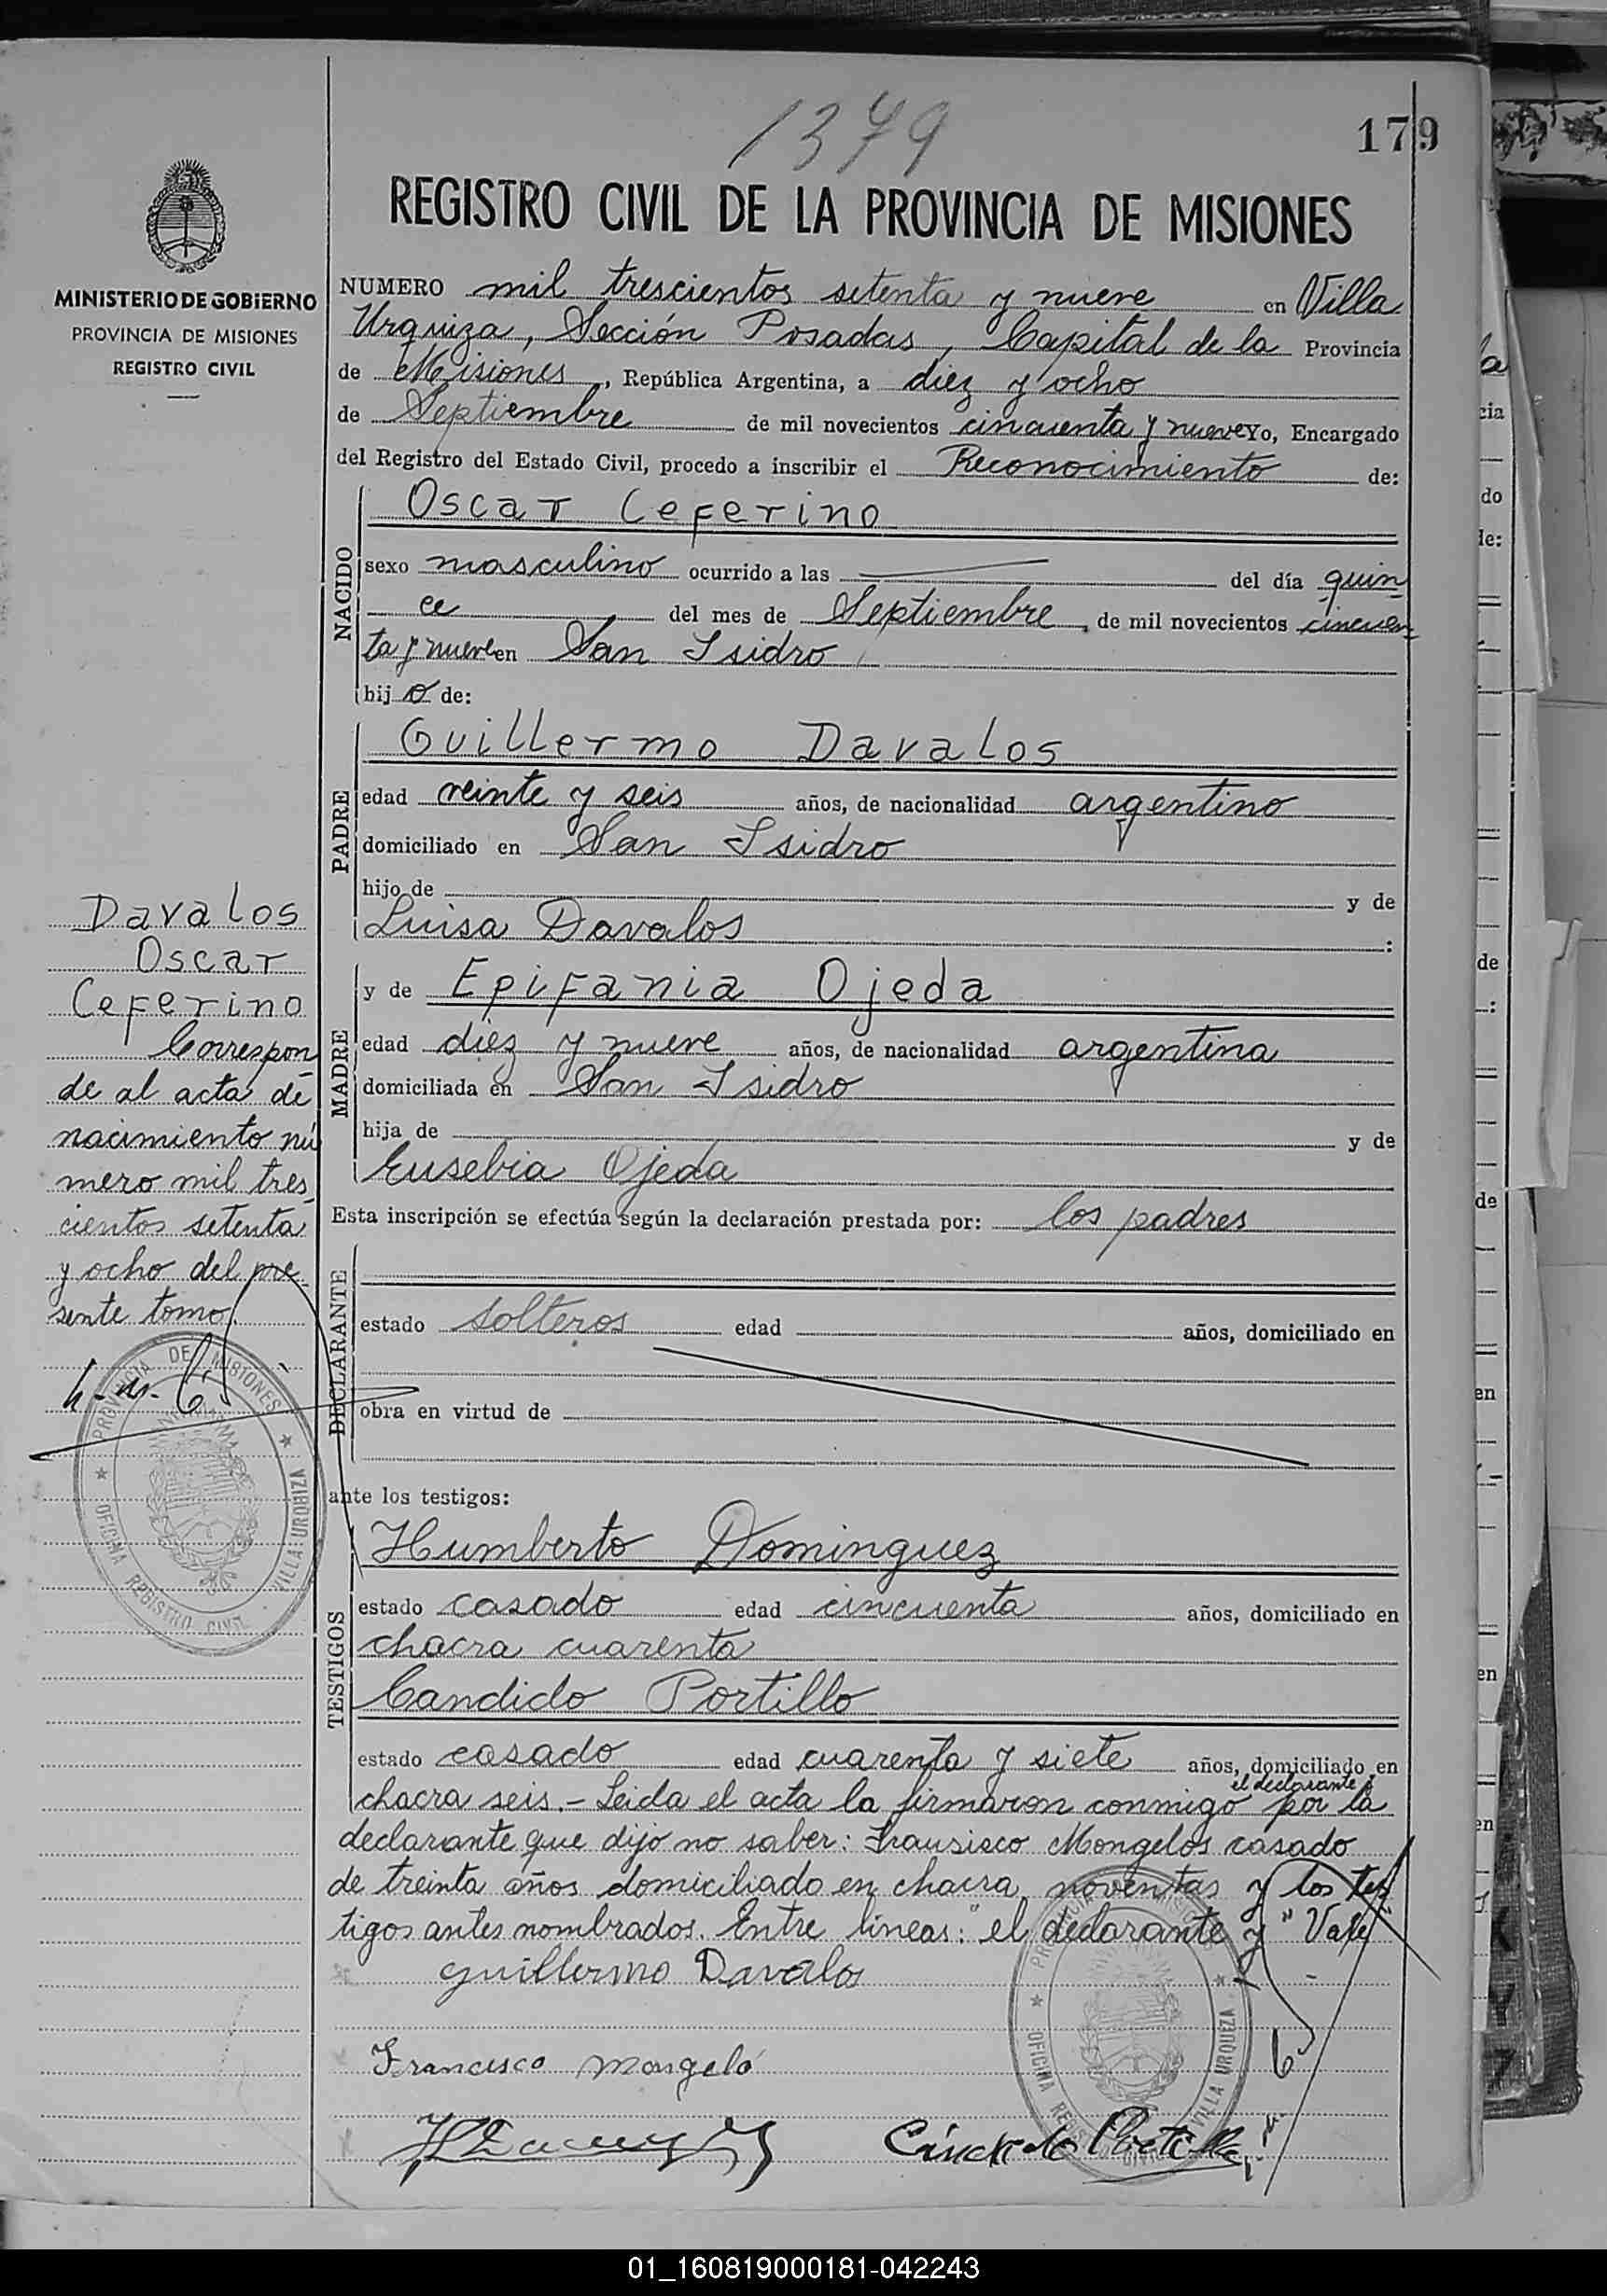 1379
179
REGISTRO CIVIL DE LA PROVINCIA DE MISIONES
MINISTERIO DE GOBIERNO
PROVINCIA DE MISIONES
REGISTRO CIVIL
NUMERO mil trescientos setenta y nueve en Villa
Urquiza, Sección Posadas, Capital de la Provincia
de Misiones, República Argentina, a diez y ocho
de Septiembre de mil novecientos cincuenta y nueve Yo, Encargado
del Registro del Estado Civil, procedo a inscribir el Reconocimiento de:
NACIDO
Oscar Ceferino
sexo masculino ocurrido a las del día quin
ce del mes de Septiembre de mil novecientos cincuen
ta y nueve en San Isidro
hijo de:
PADRE
Guillermo Davalos
edad veinte y seis años, de nacionalidad argentino
domiciliado en San Isidro
hijo de y de
Luisa Davalos :
MADRE
y de Epifania Ojeda
edad diez y nueve años, de nacionalidad argentina
domiciliada en San Isidro
hija de y de
Eusebia Ojeda
Esta inscripción se efectúa según la declaración prestada por: los padres
DECLARANTE
estado solteros edad años, domiciliado en
obra en virtud de
ante los testigos:
TESTIGOS
Humberto Dominguez
estado casado edad cincuenta años, domiciliado en
chacra cuarenta
Candido Portillo
estado casado edad cuarenta y siete años, domiciliado en
el declarante y
chacra seis.- Leida el acta la firmaron conmigo por la
declarante que dijo no saber: Fransisco Mongelos casado
de treinta años domiciliado en chacra noventas y los tes
tigos antes nombrados. Entre lineas: "el declarante y" Vale
guillermo Davalos
Francisco mongelo
Davalos
Oscar
Ceferino
Correspon
de al acta de
nacimiento nú
mero mil tres
cientos setenta
y ocho del pre
sente tomo
PROVINCIA DE MISIONES
OFICINA REGISTRO CIVIL VILLA URQUIZA
OFICINA REGISTRO CIVIL VILLA URQUIZA
cia
do
de:
de
de
en
en
en
01_160819000181-042243